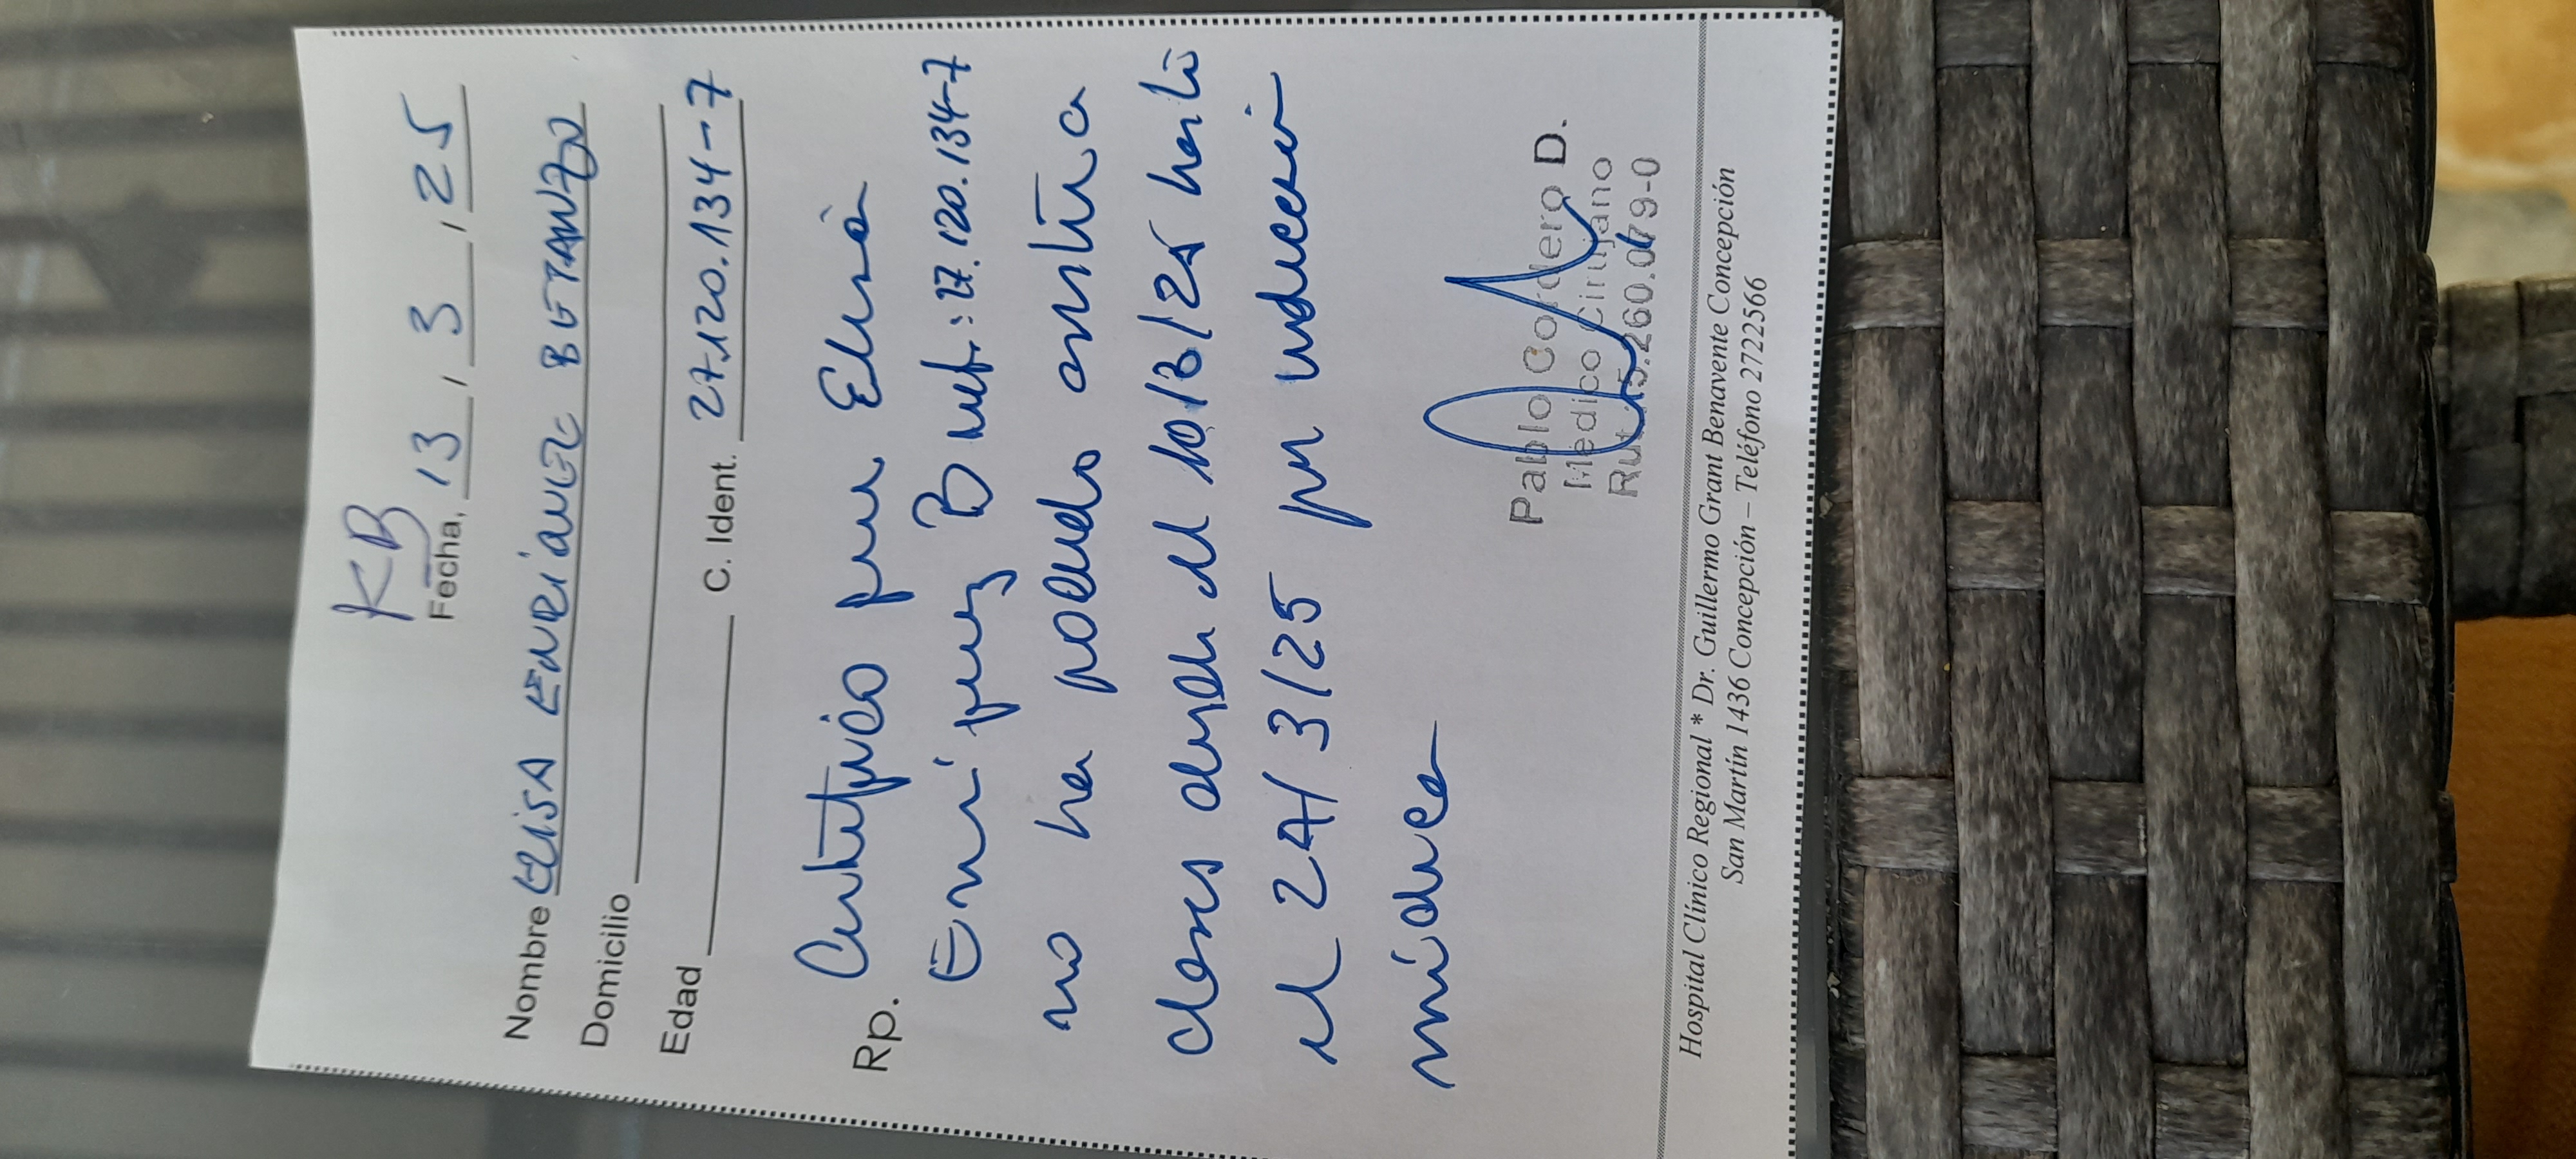 KB
Fecha, 13, 3, 25
Nombre ELISA ENRÍQUEZ BETANZO
Domicilio
Edad C. Ident. 27.120.134-7
Rp. Certifico que Elisa
Enríquez B ref.: 27.120.134-7
no ha podido asistir a
clases desde el 10/3/25 hasta
el 24/3/25 por indicación
médica
Pablo Cordero D.
Médico Cirujano
Rut 15.260.079-0
Hospital Clínico Regional * Dr. Guillermo Grant Benavente Concepción
San Martín 1436 Concepción – Teléfono 2722566